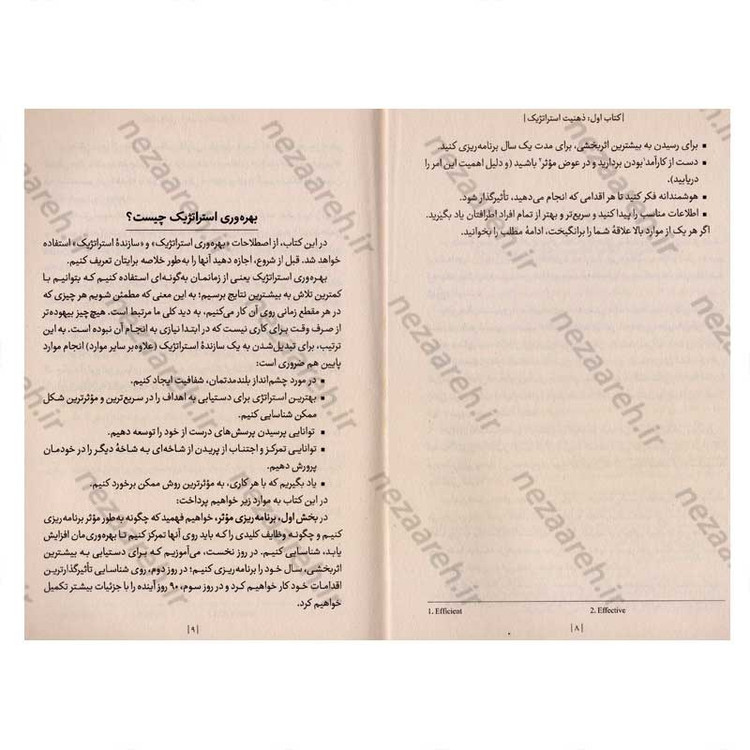 | کتاب اول: ذهنیت استراتژیک |
▪ برای رسیدن به بیشترین اثربخشی، برای مدت یک سال برنامه‌ریزی کنید.
▪ دست از کارآمد¹ بودن بردارید و در عوض مؤثر² باشید (و دلیل اهمیت این امر را
دریابید).
▪ هوشمندانه فکر کنید تا هر اقدامی که انجام می‌دهید، تأثیرگذار شود.
▪ اطلاعات مناسب را پیدا کنید و سریع‌تر و بهتر از تمام افراد اطرافتان یاد بگیرید.
اگر هر یک از موارد بالا علاقهٔ شما را برانگیخت، ادامهٔ مطلب را بخوانید.
1. Efficient 2. Effective
| ۸ |
بهره‌وری استراتژیک چیست؟
در این کتاب، از اصطلاحات «بهره‌وری استراتژیک» و «سازندهٔ استراتژیک» استفاده
خواهد شد. قبل از شروع، اجازه دهید آنها را به‌طور خلاصه برایتان تعریف کنیم.
بهره‌وری استراتژیک یعنی از زمانمان به‌گونه‌ای استفاده کنیم که بتوانیم با
کمترین تلاش به بیشترین نتایج برسیم؛ به این معنی که مطمئن شویم هر چیزی که
در هر مقطع زمانی روی آن کار می‌کنیم، به دید کلی ما مرتبط است. هیچ‌چیز بیهوده‌تر
از صرف وقت برای کاری نیست که در ابتدا نیازی به انجام آن نبوده است. به این
ترتیب، برای تبدیل‌شدن به یک سازندهٔ استراتژیک (علاوه‌بر سایر موارد) انجام موارد
پایین هم ضروری است:
▪ در مورد چشم‌انداز بلندمدتمان، شفافیت ایجاد کنیم.
▪ بهترین استراتژی برای دستیابی به اهداف را در سریع‌ترین و مؤثرترین شکل
ممکن شناسایی کنیم.
▪ توانایی پرسیدن پرسش‌های درست از خود را توسعه دهیم.
▪ توانایی تمرکز و اجتناب از پریدن از شاخه‌ای به شاخهٔ دیگر را در خودمان
پرورش دهیم.
▪ یاد بگیریم که با هر کاری، به مؤثرترین روش ممکن برخورد کنیم.
در این کتاب به موارد زیر خواهیم پرداخت:
در بخش اول، برنامه‌ریزی مؤثر، خواهیم فهمید که چگونه به‌طور مؤثر برنامه‌ریزی
کنیم و چگونه وظایف کلیدی را که باید روی آنها تمرکز کنیم تا بهره‌وری‌مان افزایش
یابد، شناسایی کنیم. در روز نخست، می‌آموزیم که برای دستیابی به بیشترین
اثربخشی، سال خود را برنامه‌ریزی کنیم؛ در روز دوم، روی شناسایی تأثیرگذارترین
اقدامات خود کار خواهیم کرد و در روز سوم، ۹۰ روز آینده را با جزئیات بیشتر تکمیل
خواهیم کرد.
| ۹ |
nezaareh.ir
nezaareh.ir
nezaareh.ir
nezaareh.ir
nezaareh.ir
nezaareh.ir
nezaareh.ir